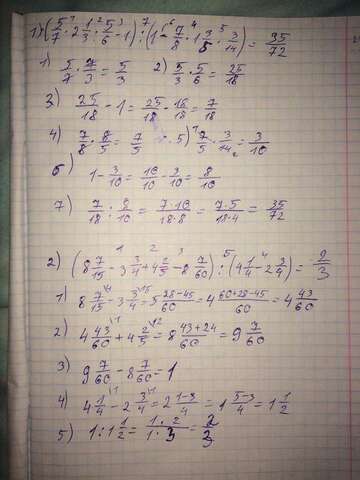 1) (5/7 · 2 1/3 · 5/6 - 1) : (1 - 7/8 · 1 3/5 · 3/14) = 35/72
1) 5/7 · 7/3 = 5/3 2) 5/3 · 5/6 = 25/18
3) 25/18 - 1 = 25/18 - 18/18 = 7/18
4) 7/8 · 8/5 = 7/5 5) 7/5 · 3/14 = 3/10
6) 1 - 3/10 = 10/10 - 3/10 = 8/10
7) 7/18 : 8/10 = 7·10/18·8 = 7·5/18·4 = 35/72
2) (8 7/15 - 3 3/4 + 4 2/5 - 8 7/60) : (4 1/4 - 2 3/4) = 2/3
1) 8 7/15 - 3 3/4 = 5 28-45/60 = 4 60+28-45/60 = 4 43/60
2) 4 43/60 + 4 2/5 = 8 43+24/60 = 9 7/60
3) 9 7/60 - 8 7/60 = 1
4) 4 1/4 - 2 3/4 = 2 1-3/4 = 1 5-3/4 = 1 1/2
5) 1 : 1 1/2 = 1·2/1·3 = 2/3